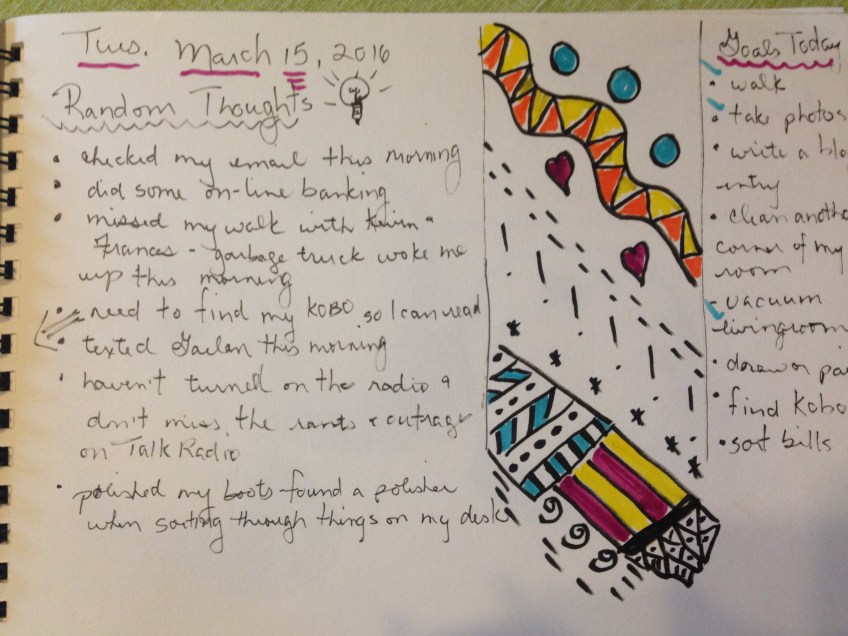 Tues. March 15, 2016
Random Thoughts
• checked my email this morning
• did some on-line banking
• missed my walk with &
Frances - garbage truck woke me
up this morning
• need to find my KOBO so I can read
• texted this morning
• haven't turned on the radio &
don't miss the rants & outrage
on Talk Radio
• polished my boots - found a polisher
when sorting through things on my desk
Goals Today
• walk
• take photos
• write a blo
entry
• clean anothe
corner of my
room
• vacuum
livingroom
• draw or pai
• find Kobo
• sort bills